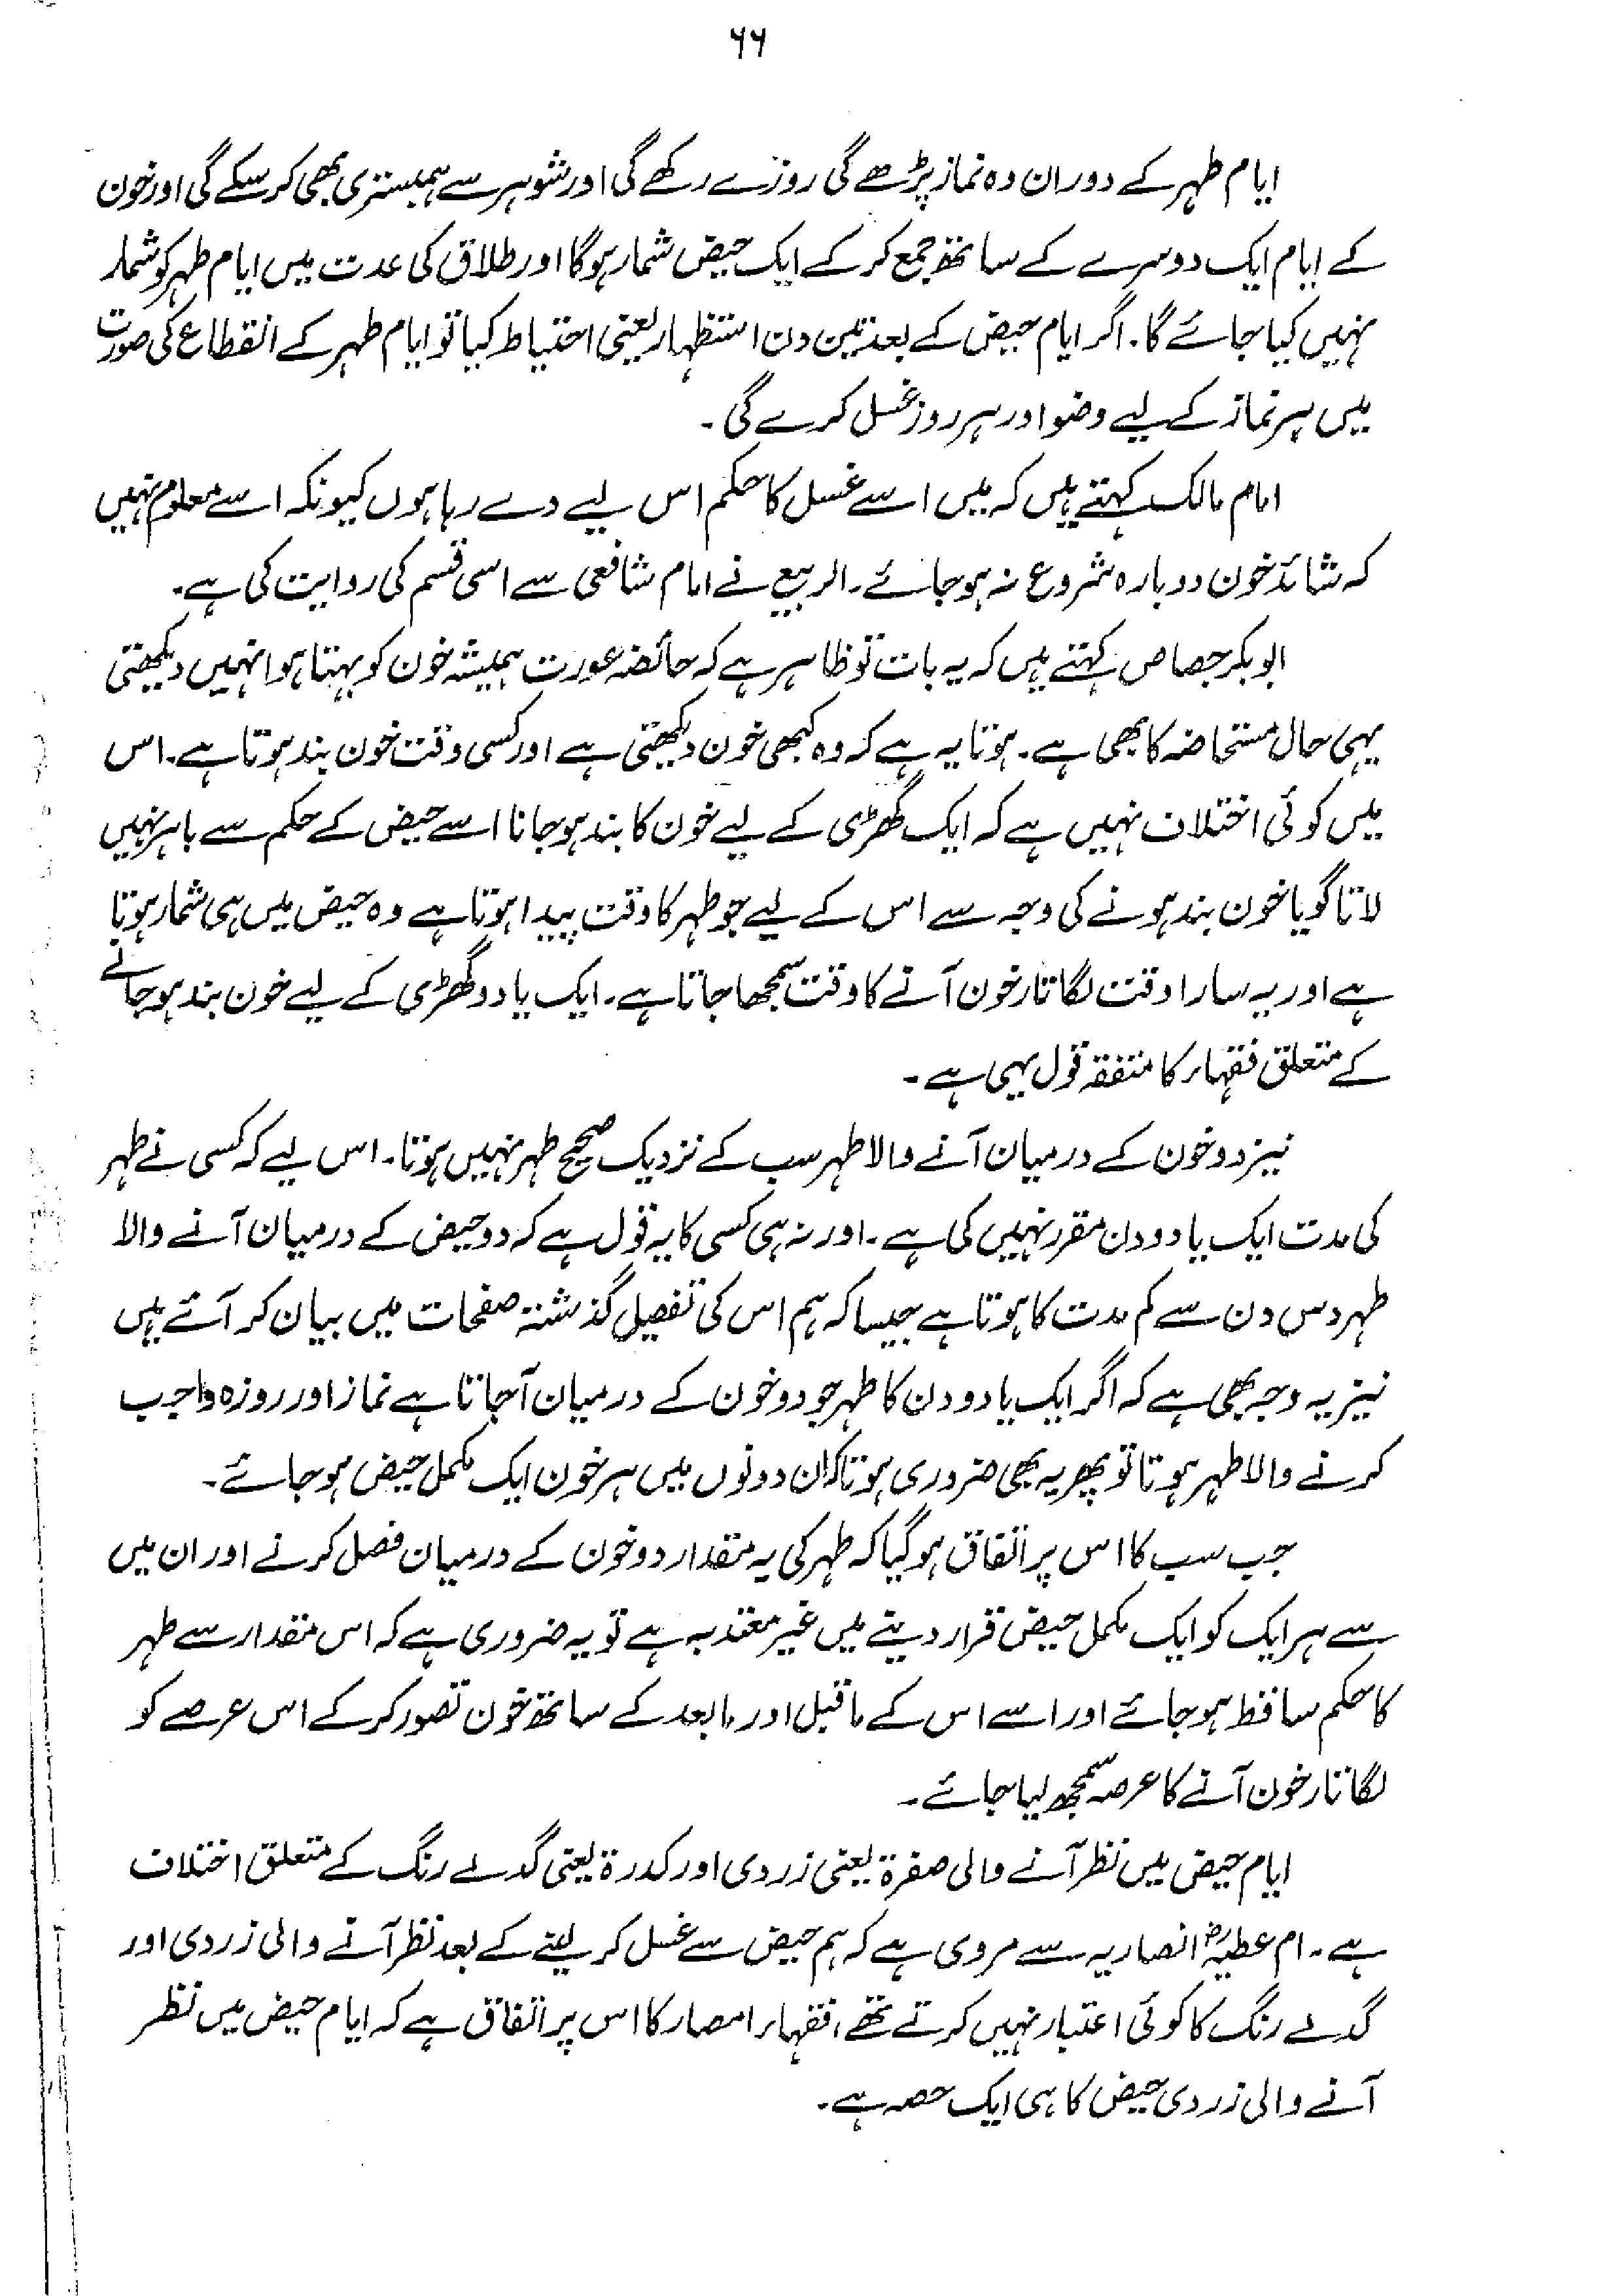 ۶۶
ایام طہر کے دوران وہ نماز پڑھے گی روزے رکھے گی اور شوہر سے ہمبستری بھی کر سکے گی اور خون
کے ایام ایک دوسرے کے ساتھ جمع کر کے ایک حیض شمار ہوگا اور طلاق کی عدت میں ایام طہر کو شمار
نہیں کیا جائے گا۔ اگر ایام حیض کے بعد تین دن استظہار یعنی احتیاط کیا تو ایام طہر کے انقطاع کی صورت
میں ہر نماز کے لیے وضو اور ہر روز غسل کرے گی۔
امام مالک کہتے ہیں کہ میں اسے غسل کا حکم اس لیے دے رہا ہوں کیونکہ اسے معلوم نہیں
کہ شائد خون دوبارہ شروع نہ ہو جائے۔ الربیع نے امام شافعی سے اسی قسم کی روایت کی ہے۔
ابوبکر جصاص کہتے ہیں کہ یہ بات تو ظاہر ہے کہ حائضہ عورت ہمیشہ خون کو بہتا ہوا نہیں دیکھتی
یہی حال مستحاضہ کا بھی ہے۔ ہوتا یہ ہے کہ وہ کبھی خون دیکھتی ہے اور کسی وقت خون بند ہوتا ہے۔ اس
میں کوئی اختلاف نہیں ہے کہ ایک گھڑی کے لیے خون کا بند ہو جانا اسے حیض کے حکم سے باہر نہیں
لاتا گویا خون بند ہونے کی وجہ سے اس کے لیے جو طہر کا وقت پیدا ہوتا ہے وہ حیض میں ہی شمار ہوتا
ہے اور یہ سارا وقت لگاتار خون آنے کا وقت سمجھا جاتا ہے۔ ایک یا دو گھڑی کے لیے خون بند ہو جانے
کے متعلق فقہاء کا متفقہ قول یہی ہے۔
نیز دو خون کے درمیان آنے والا طہر سب کے نزدیک صحیح طہر نہیں ہوتا۔ اس لیے کہ کسی نے طہر
کی مدت ایک یا دو دن مقرر نہیں کی ہے۔ اور نہ ہی کسی کا یہ قول ہے کہ دو حیض کے درمیان آنے والا
طہر دس دن سے کم مدت کا ہوتا ہے جیسا کہ ہم اس کی تفصیل گذشتہ صفحات میں بیان کر آئے ہیں
نیز یہ وجہ بھی ہے کہ اگر ایک یا دو دن کا طہر جو دو خون کے درمیان آجاتا ہے نماز اور روزہ واجب
کرنے والا طہر ہوتا تو پھر یہ بھی ضروری ہوتا کہ ان دونوں میں ہر خون ایک مکمل حیض ہو جائے۔
جب سب کا اس پر اتفاق ہو گیا کہ طہر کی یہ مقدار دو خون کے درمیان فصل کرنے اور ان میں
سے ہر ایک کو ایک مکمل حیض قرار دینے میں غیر معتد بہ ہے تو یہ ضروری ہے کہ اس مقدار سے طہر
کا حکم ساقط ہو جائے اور اسے اس کے ماقبل اور مابعد کے ساتھ خون تصور کر کے اس عرصے کو
لگاتار خون آنے کا عرصہ سمجھ لیا جائے۔
ایام حیض میں نظر آنے والی صفرۃ یعنی زردی اور کدرۃ یعنی گدلے رنگ کے متعلق اختلاف
ہے۔ ام عطیہؓ انصاریہ سے مروی ہے کہ ہم حیض سے غسل کر لینے کے بعد نظر آنے والی زردی اور
گدلے رنگ کا کوئی اعتبار نہیں کرتے تھے، فقہاء امصار کا اس پر اتفاق ہے کہ ایام حیض میں نظر
آنے والی زردی حیض کا ہی ایک حصہ ہے۔